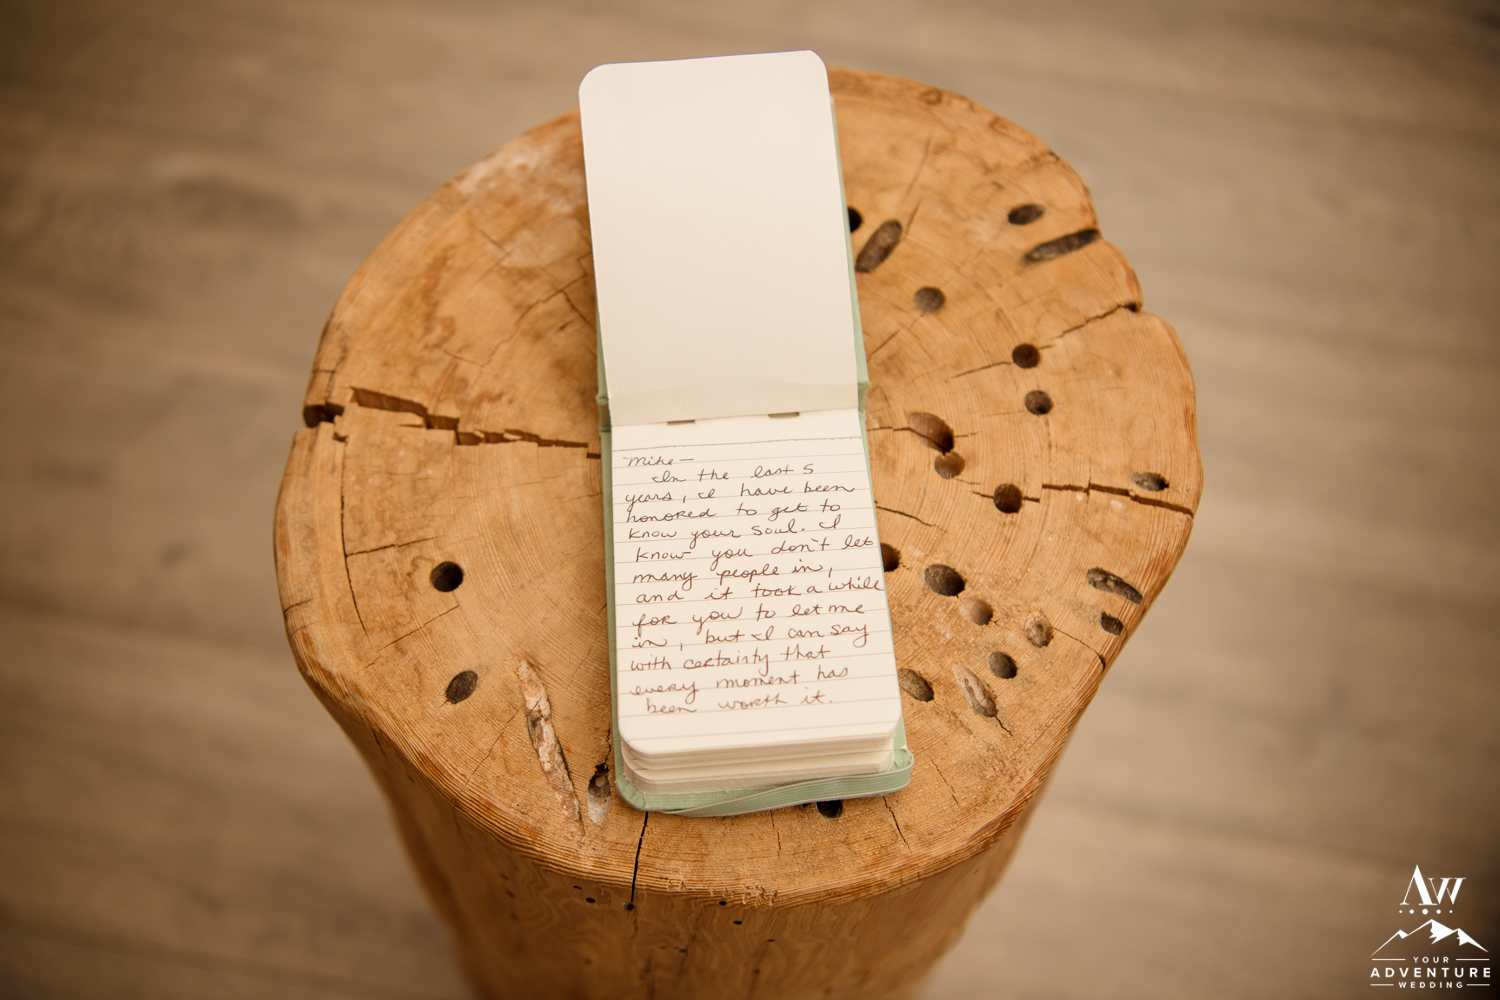 Mike—
In the last 5
years, I have been
honored to get to
know your soul. I
know you don't let
many people in,
and it took a while
for you to let me
in, but I can say
with certainty that
every moment has
been worth it.
AW
YOUR
ADVENTURE
WEDDING